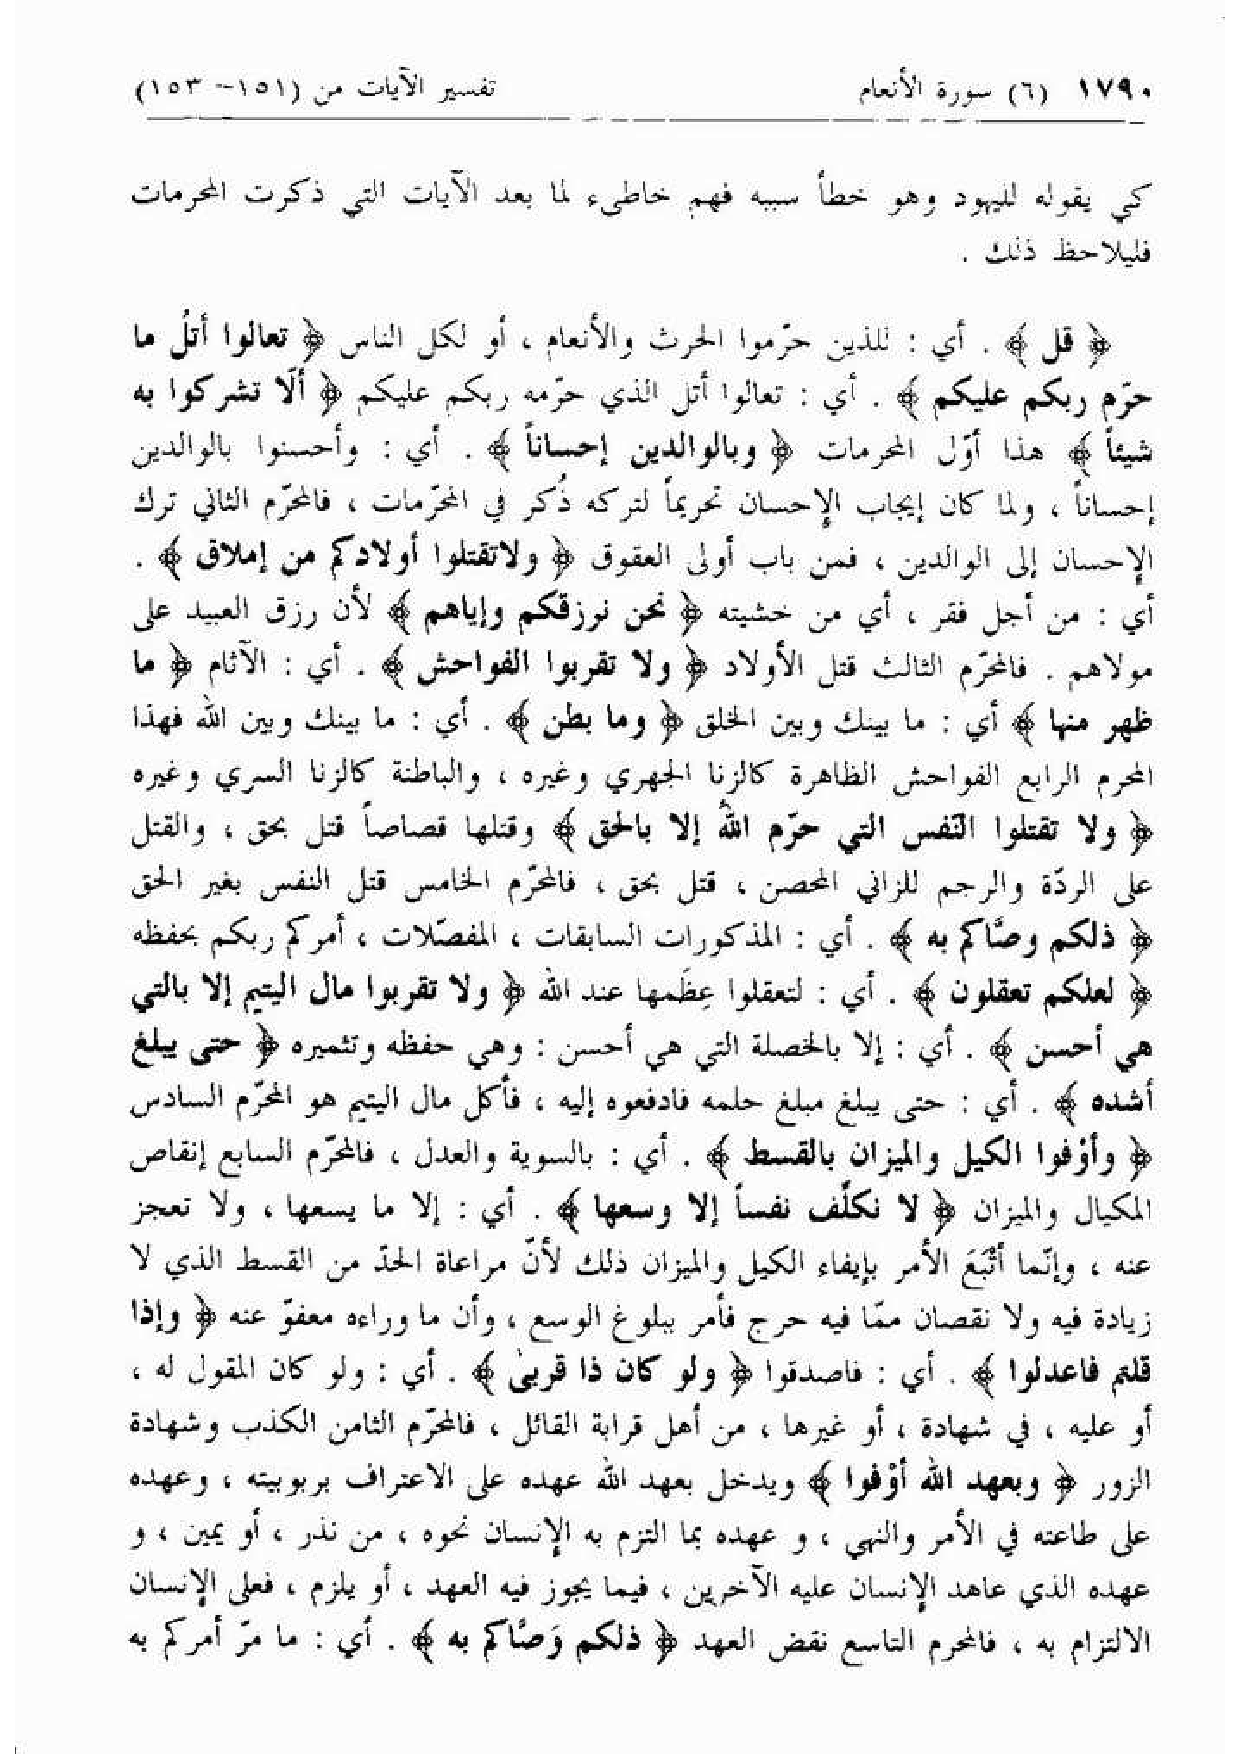 ١٧٩٠ (٦) سورة الأنعام تفسير الآيات من (١٥١- ١٥٣)
كي يقوله لليهود وهو خطأ سببه فهم خاطىء لما بعد الآيات التي ذكرت المحرمات
فليلاحظ ذلك .
﴿ قل ﴾ . أي : للذين حرّموا الحرث والأنعام ، أو لكل الناس ﴿ تعالوا أتلُ ما
حرّم ربكم عليكم ﴾ . أي : تعالوا أتل الذي حرّمه ربكم عليكم ﴿ ألّا تشركوا به
شيئاً ﴾ هذا أوّل المحرمات ﴿ وبالوالدين إحساناً ﴾ . أي : وأحسنوا بالوالدين
إحساناً ، ولما كان إيجاب الإحسان تحريماً لتركه ذُكر في المحرّمات ، فالمحرّم الثاني ترك
الإحسان إلى الوالدين ، فمن باب أولى العقوق ﴿ ولاتقتلوا أولادكم من إملاق ﴾ .
أي : من أجل فقر ، أي من خشيته ﴿ نحن نرزقكم وإياهم ﴾ لأن رزق العبيد على
مولاهم . فالمحرّم الثالث قتل الأولاد ﴿ ولا تقربوا الفواحش ﴾ . أي : الآثام ﴿ ما
ظهر منها ﴾ أي : ما بينك وبين الخلق ﴿ وما بطن ﴾ . أي : ما بينك وبين الله فهذا
المحرم الرابع الفواحش الظاهرة كالزنا الجهري وغيره ، والباطنة كالزنا السري وغيره
﴿ ولا تقتلوا النّفس التي حرّم اللهُ إلا بالحق ﴾ وقتلها قصاصاً قتل بحق ، والقتل
على الردّة والرجم للزاني المحصن ، قتل بحق ، فالمحرّم الخامس قتل النفس بغير الحق
﴿ ذلكم وصَّاكم به ﴾ . أي : المذكورات السابقات ، المفصّلات ، أمركم ربكم بحفظه
﴿ لعلكم تعقلون ﴾ . أي : لتعقلوا عِظَمها عند الله ﴿ ولا تقربوا مال اليتيم إلا بالتي
هي أحسن ﴾ . أي : إلا بالخصلة التي هي أحسن : وهي حفظه وتثميره ﴿ حتى يبلغ
أشده ﴾ . أي : حتى يبلغ مبلغ حلمه فادفعوه إليه ، فأكل مال اليتيم هو المحرّم السادس
﴿ وأوْفوا الكيل والميزان بالقسط ﴾ . أي : بالسوية والعدل ، فالمحرّم السابع إنقاص
المكيال والميزان ﴿ لا نكلّف نفساً إلا وسعها ﴾ . أي : إلا ما يسعها ، ولا تعجز
عنه ، وإنّما أتْبَعَ الأمر بإيفاء الكيل والميزان ذلك لأنّ مراعاة الحدّ من القسط الذي لا
زيادة فيه ولا نقصان ممّا فيه حرج فأمر ببلوغ الوسع ، وأن ما وراءه معفوّ عنه ﴿ وإذا
قلتم فاعدلوا ﴾ . أي : فاصدقوا ﴿ ولو كان ذا قربىٰ ﴾ . أي : ولو كان المقول له ،
أو عليه ، في شهادة ، أو غيرها ، من أهل قرابة القائل ، فالمحرّم الثامن الكذب وشهادة
الزور ﴿ وبعهد الله أوْفوا ﴾ ويدخل بعهد الله عهده على الاعتراف بربوبيته ، وعهده
على طاعته في الأمر والنهي ، و عهده بما التزم به الإنسان نحوه ، من نذر ، أو يمين ، و
عهده الذي عاهد الإنسان عليه الآخرين ، فيما يجوز فيه العهد ، أو يلزم ، فعلى الإنسان
الالتزام به ، فالمحرم التاسع نقض العهد ﴿ ذلكم وَصَّاكم به ﴾ . أي : ما مرّ أمركم به